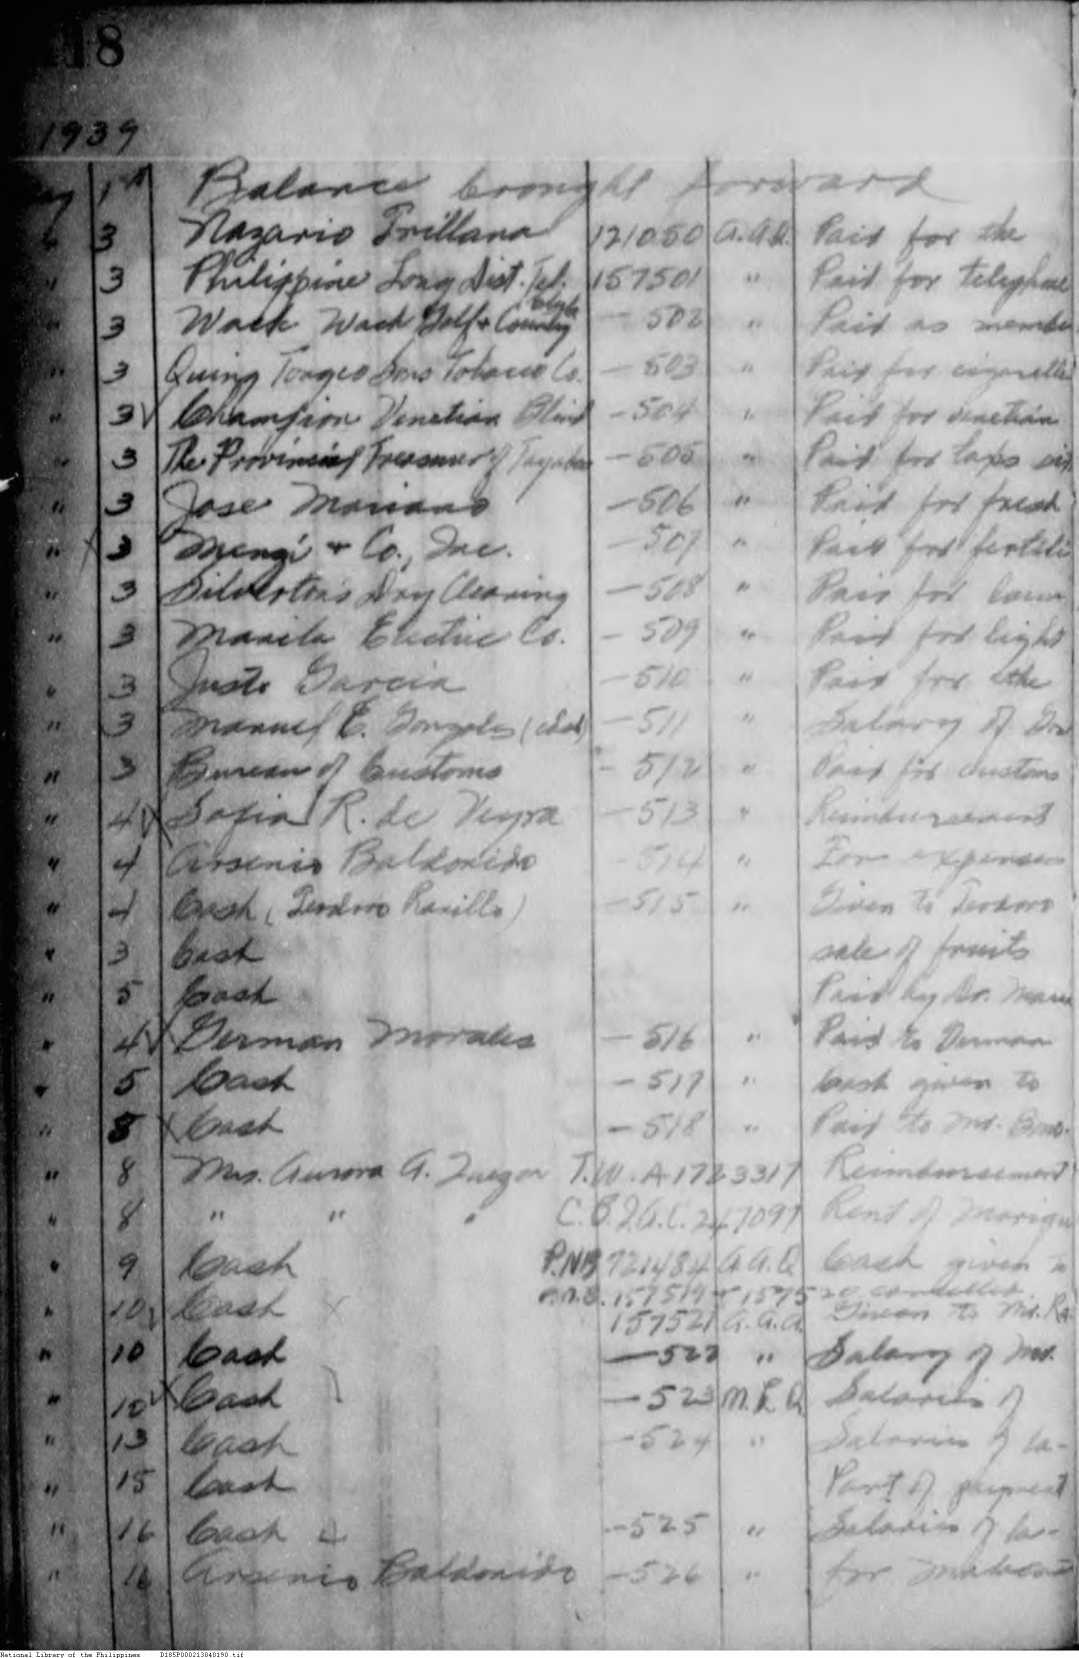 18
1939
1st Balance brought forward
3 Nazario Trillana 121050 A.A.Q. Paid for the
" 3 Philippine Long Dist. Tel. 157501 " Paid for telephone
" 3 Wack Wack Golf & Country Club - 502 " Paid as membe
" 3 Quing Tongco Sons Tobacco Co. - 503 " Paid for cigarette
" 3 Champion Venetian Blind - 504 " Paid for venetian
" 3 The Provincial Treasurer of Tayabas - 505 " Paid for
" 3 Jose Mariano - 506 " Paid for fresh
" 3 Mengi & Co., Inc. - 507 " Paid for fertili
" 3 Silverton's Dry Cleaning - 508 " Paid for laun
" 3 Manila Electric Co. - 509 " Paid for light
" 3 Justo Garcia - 510 " Paid for the
" 3 Manuel E. Gonzales - 511 " Salary of
" 3 Bureau of Customs - 512 " Paid for customs
" 4 Sofia R. de Veyra - 513 " Reimbursement
" 4 Arsenio Baldonido - 514 " For expenses
" 4 Cash (Teodoro Ranillo) - 515 " Given to Teodoro
" 3 Cash sale of fruits
" 5 Cash Paid by Dr.
" 4 German Morales - 516 " Paid to German
" 5 Cash - 517 " Cash given to
" 8 Cash - 518 " Paid to
" 8 Mrs. Aurora A. Quezon T.W.A-1723317 Reimbursement
" 8 " " " 247097 Rent of Mariqu
" 9 Cash P.N.B 721484 A.A.Q. Cash given to
157519 & 157520 cancelled.
" 10 Cash 157521 A.A.Q. Given to
" 10 Cash - 522 " Salary of
" 10 Cash - 523 M.L.Q. Salaries of
" 13 Cash - 524 " Salaries of la-
" 15 Cash Part of payment
" 16 Cash - 525 " Salaries of la-
" 16 Arsenio Baldonido - 526 " for
National Library of the Philippines D185P000213040190.tif